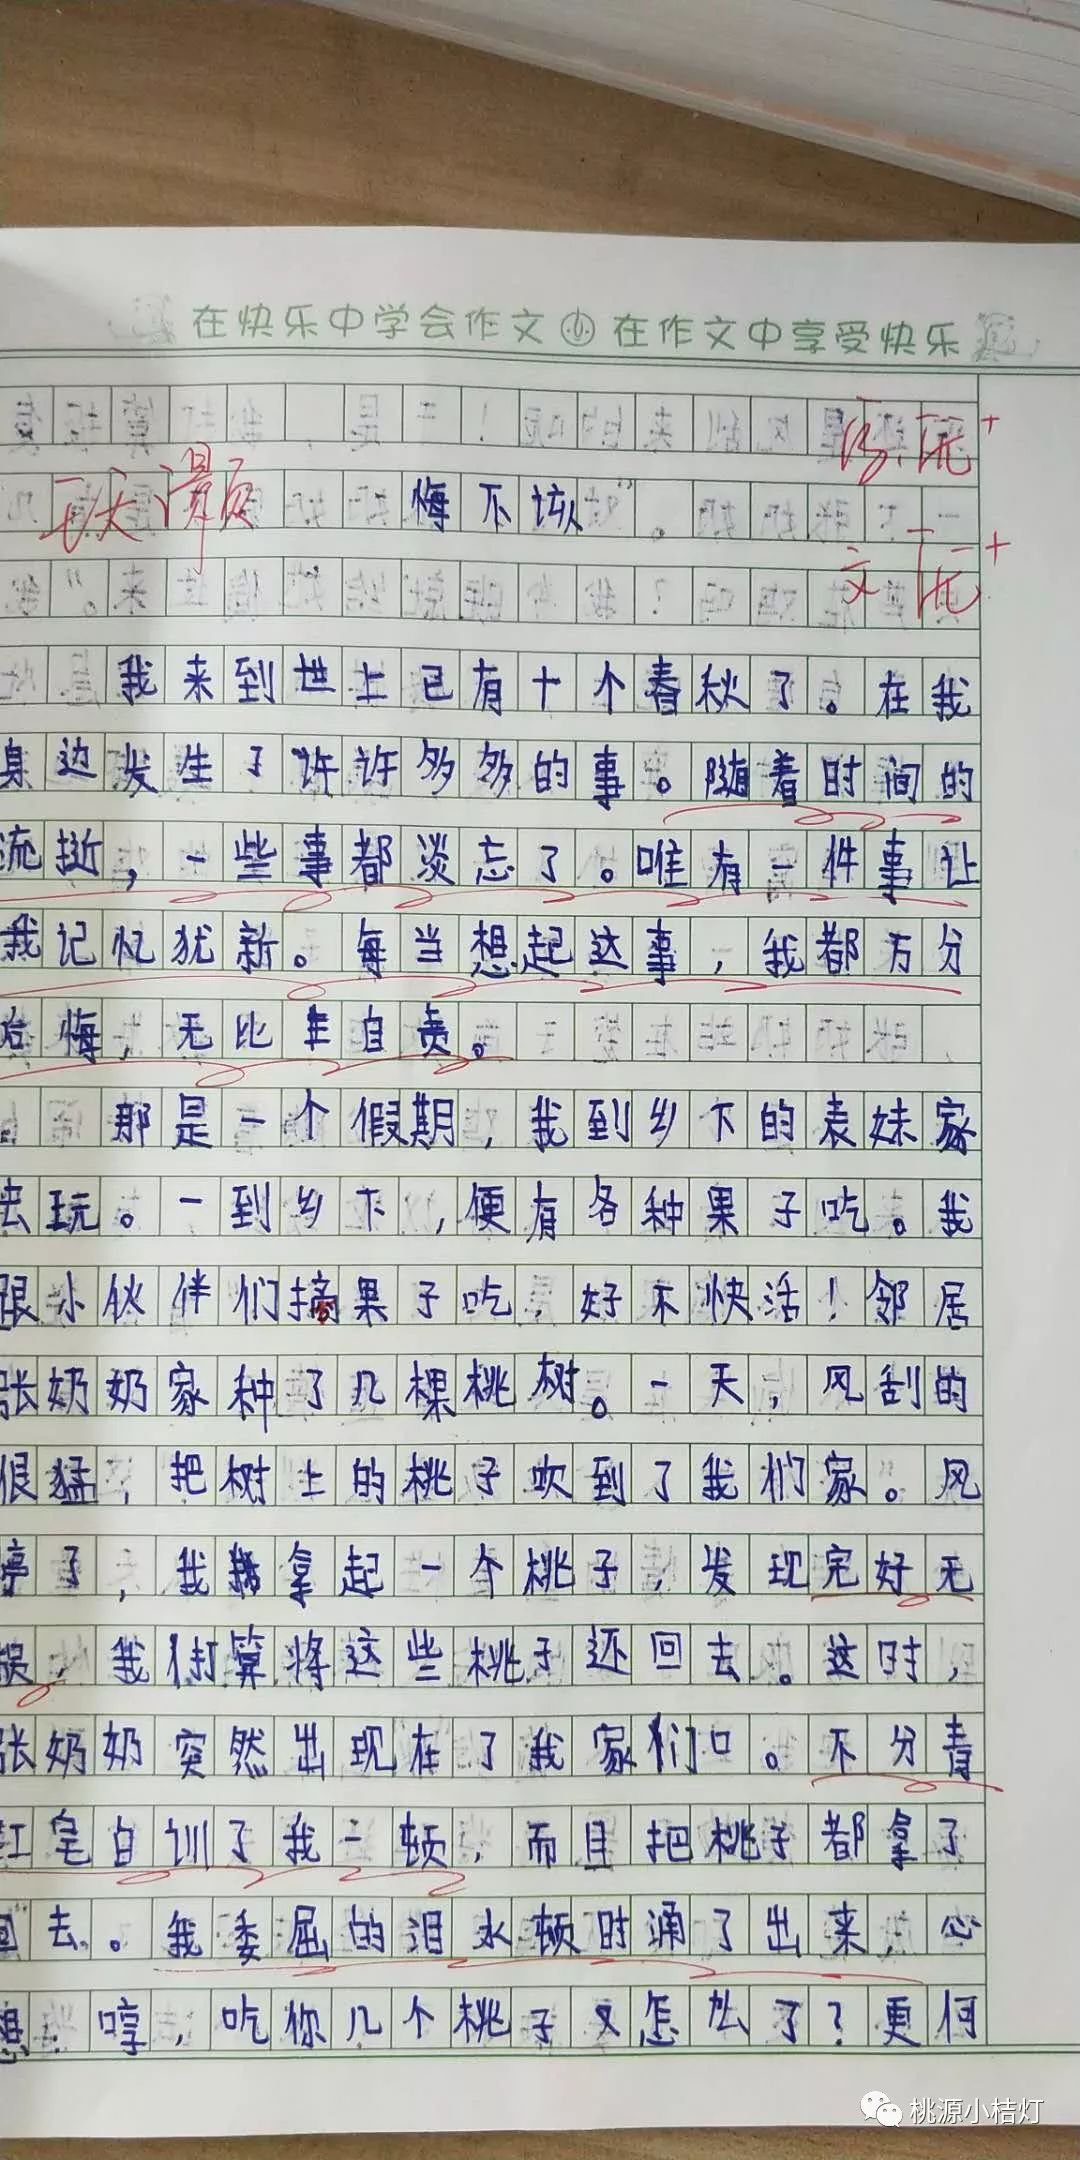 在快乐中学会作文 在作文中享受快乐
优+
悔不该
文 优+
我来到世上已有十个春秋了。在我
身边发生了许许多多的事。随着时间的
流逝，一些事都淡忘了。唯有一件事让
我记忆犹新。每当想起这事，我都万分
后悔，无比自责。
那是一个假期，我到乡下的表妹家
去玩。一到乡下，便有各种果子吃。我
跟小伙伴们摘果子吃，好不快活！邻居
张奶奶家种了几棵桃树。一天，风刮的
很猛，把树上的桃子吹到了我们家。风
停了，我拿起一个桃子，发现完好无
损，我打算将这些桃子还回去。这时，
张奶奶突然出现在了我家们口。不分青
红皂白训了我一顿，而且把桃子都拿了
回去。我委屈的泪水顿时涌了出来，心
想：哼，吃你几个桃子又怎么了？更何
桃源小桔灯